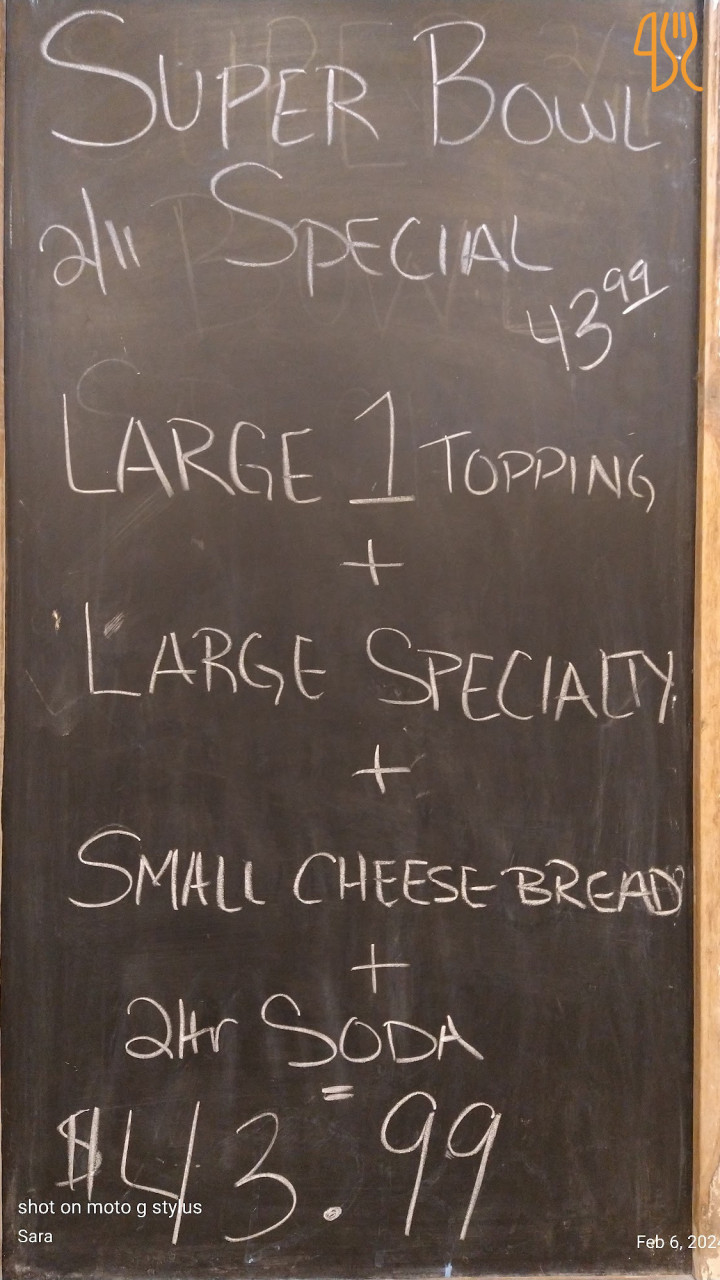 SUPER BOWL
2/11 SPECIAL
43 99
LARGE 1 TOPPING
+
LARGE SPECIALTY
+
SMALL CHEESE BREAD
+
2ltr SODA
=
$43.99
shot on moto g stylus
Sara
Feb 6, 202